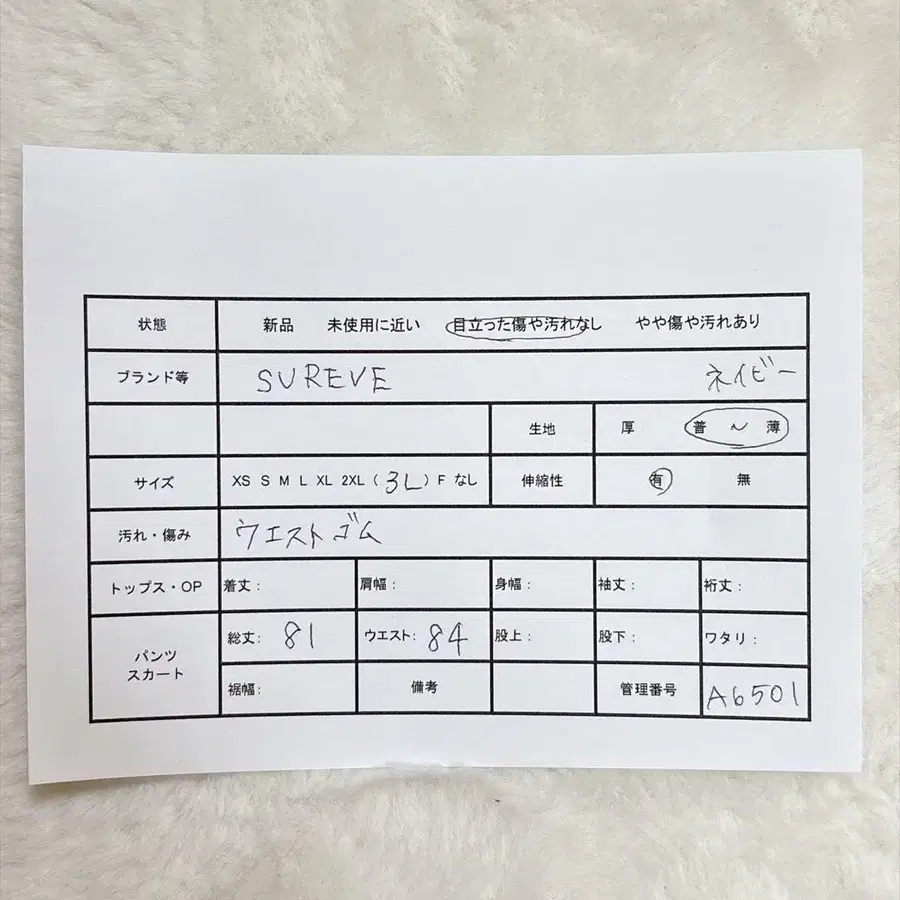 状態 新品 未使用に近い 目立った傷や汚れなし やや傷や汚れあり
ブランド等 SUREVE ネイビー
生地 厚 普 〜 薄
サイズ XS S M L XL 2XL ( 3L ) F なし 伸縮性 有 無
汚れ・傷み ウエストゴム
トップス・OP 着丈: 肩幅: 身幅: 袖丈: 裄丈:
パンツ スカート 総丈: 81 ウエスト: 84 股上: 股下: ワタリ:
裾幅: 備考 管理番号 A6501